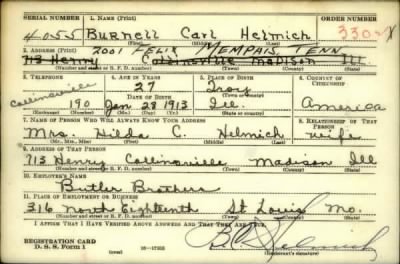 SERIAL NUMBER 1. NAME (Print) ORDER NUMBER
4055 Burnell Carl Helmich 330
(First) (Middle) (Last)
2001 Felix Memphis, Tenn
2. ADDRESS (Print)
713 Henry Collinsville Madison Ill.
(Number and street or R. F. D. number) (Town) (County) (State)
3. TELEPHONE 4. AGE IN YEARS 5. PLACE OF BIRTH 6. COUNTRY OF CITIZENSHIP
27 Troy
Collinsville DATE OF BIRTH (Town or county)
190 Jan 28 1913 Ill. America
(Exchange) (Number) (Mo.) (Day) (Yr.) (State or country)
7. NAME OF PERSON WHO WILL ALWAYS KNOW YOUR ADDRESS 8. RELATIONSHIP OF THAT PERSON
Mrs. Hilda C. Helmich wife
(Mr., Mrs., Miss) (First) (Middle) (Last)
9. ADDRESS OF THAT PERSON
713 Henry Collinsville Madison Ill
(Number and street or R. F. D. number) (Town) (County) (State)
10. EMPLOYER'S NAME
Butler Brothers
11. PLACE OF EMPLOYMENT OR BUSINESS
316 North Eighteenth St Louis Mo.
(Number and street or R. F. D. number) (Town) (County) (State)
I AFFIRM THAT I HAVE VERIFIED ABOVE ANSWERS AND THAT THEY ARE TRUE.
REGISTRATION CARD
D. S. S. Form 1 (over) 16—17105